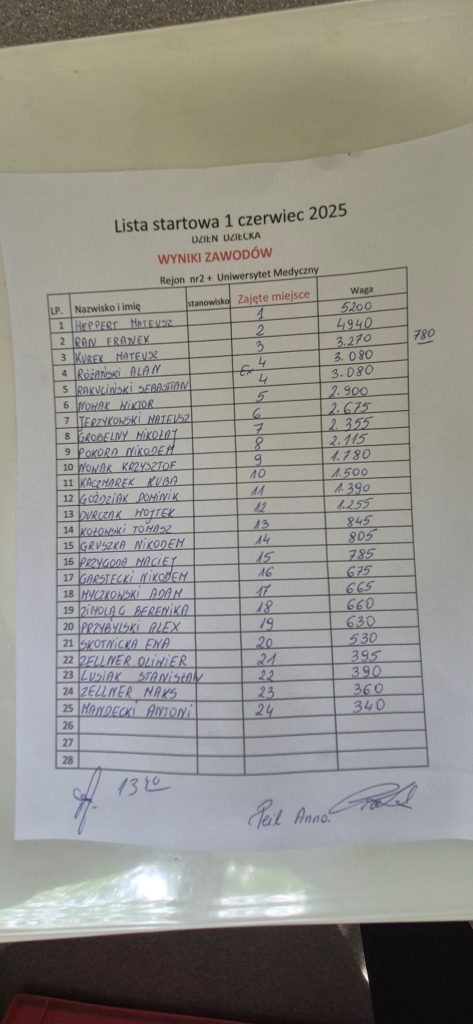 Lista startowa 1 czerwiec 2025
DZIEŃ DZIECKA
WYNIKI ZAWODÓW
Rejon nr2 + Uniwersytet Medyczny
LP. Nazwisko i imię stanowisko Zajęte miejsce Waga
1 HEPPERT MATEUSZ 1 5200
2 RAN FRANEK 2 4940
3 KUREK MATEUSZ 3 3.270 780
4 RÓŻAŃSKI ALAN 4 3.080
5 RAKUCIŃSKI SEBASTIAN Ex 4 3.080
6 NOWAK WIKTOR 5 2.900
7 JERZYKOWSKI MATEUSZ 6 2.675
8 GROBELNY MIKOŁAJ 7 2.355
9 POKORA NIKODEM 8 2.115
10 NOWAK KRZYSZTOF 9 1.780
11 KACZMAREK KUBA 10 1.500
12 GOŹDZIAK DOMINIK 11 1.390
13 DURCZAK WOJTEK 12 1.255
14 KOTOWSKI TOMASZ 13 845
15 GRUSZKA NIKODEM 14 805
16 PRZYGODA MACIEJ 15 785
17 GARSTECKI NIKODEM 16 675
18 MYCZKOWSKI ADAM 17 665
19 BERENIKA 18 660
20 PRZYBYLSKI ALEX 19 630
21 SKOTNICKA EWA 20 530
22 ZELLNER OLIWIER 21 395
23 LUSIAK STANISŁAW 22 390
24 ZELLNER MAKS 23 360
25 MANDECKI ANTONI 24 340
26
27
28
13 20
Peil Anna